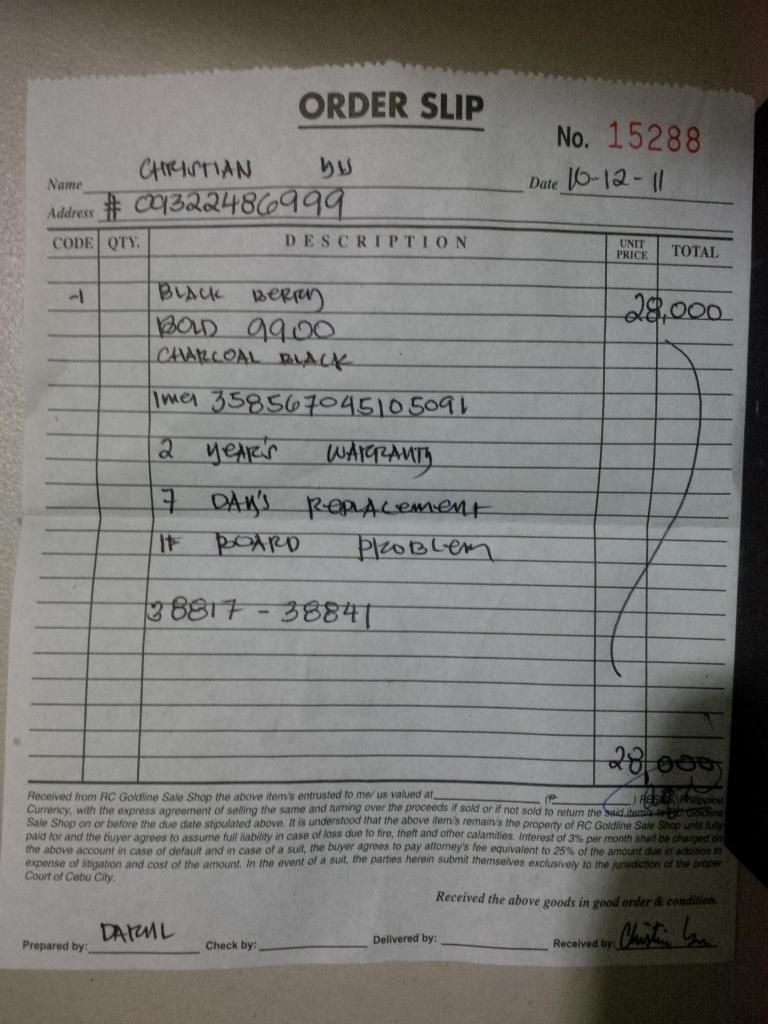 ORDER SLIP
No. 15288
Name CHRISTIAN
Date 10-12-11
Address # 09322486999
CODE QTY. DESCRIPTION UNIT PRICE TOTAL
-1 BLACK BERRY 28,000
BOLD 9900
CHARCOAL BLACK
Imei 358567045105091
2 YEAR'S WARRANTY
7 DAY'S REPLACEMENT
IF BOARD PROBLEM
38817 - 38841
28,000
Received from RC Goldline Sale Shop the above item/s entrusted to me/ us valued at (P ) Philippine
Currency, with the express agreement of selling the same and turning over the proceeds if sold or if not sold to return the said item/s to RC Goldline
Sale Shop on or before the due date stipulated above. It is understood that the above item/s remain/s the property of RC Goldline Sale Shop until fully
paid for and the buyer agrees to assume full liability in case of loss due to fire, theft and other calamities. Interest of 3% per month shall be charged on
the above account in case of default and in case of a suit, the buyer agrees to pay attorney's fee equivalent to 25% of the amount due in addition to
expense of litigation and cost of the amount. In the event of a suit, the parties herein submit themselves exclusively to the jurisdiction of the proper
Court of Cebu City.
Received the above goods in good order & condition.
Prepared by: DARYL Check by: Delivered by: Received by: